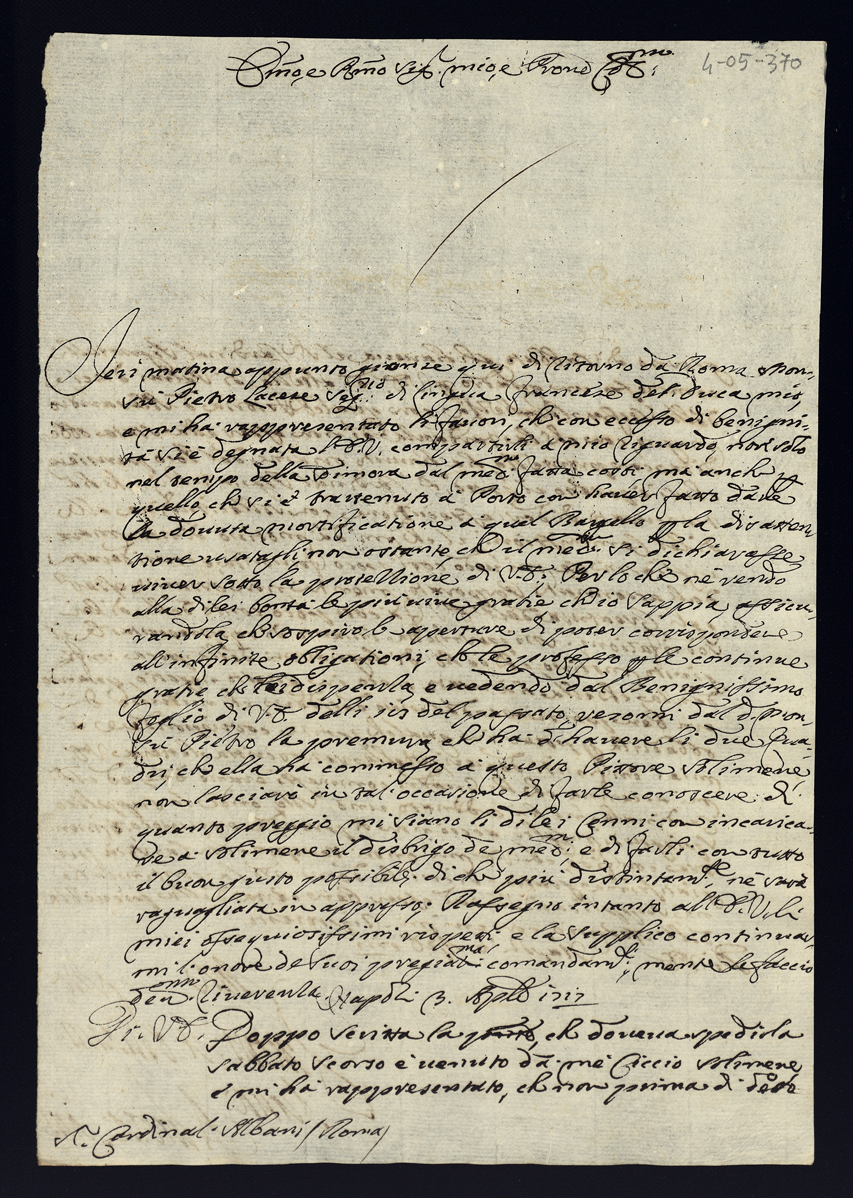 Emo, e Rmo Sigr. mio, e Prone Colmo:
4-05-370
Ieri matina appunto gionse qui di ritorno da Roma Mon-
sù Pietro Segrio: di lingua francese del Duca mio,
e mi ha rappresentato li favori, che con eccesso di benigni-
tà si è degnata V. E. compartirli à mio riguardo, non solo
nel tempo della dimora dal medmo fatta costì mà anche
quello, che si è trattenuto à Porto con haver fatto dare
la dovuta mortificatione à quel Bargello per la disatten-
tione usatagli non ostante, che il medmo si dichiarasse
viver sotto la protettione di V. E.; Per lo che ne rendo
alla di lei bontà le più vive gratie ch'io sappia, assicu-
randola, che sospiro le aperture di poter corrispondere
all'infinite obligationi, che le professo per le continue
gratie che dispenza, e vedendo dal Benignissimo
foglio di V. E. delli del passato, resomi dal d. Mon-
sù Pietro la premura, che hà di havere li due Qua-
dri, che ella hà commesso à questo Pittore Solimene,
non lasciarò in tal'occasione di farle conoscere di
quanto preggio mi siano li di lei Cenni con incarica-
re à Solimene il disbrigo de medmi: e di farli con tutto
il buon gusto possibile; di che più distintamte, ne sarà
raguagliata in appresso. Rassegno intanto all'E. V. li
miei ossequiosissimi rispetti e la supplico continuar-
mi l'onore de suoi pregiatmi: comandamti; mentre le faccio
devma. riverenza. Napoli 3. Aple 1717
Di V. E. Doppo scritta la pnte, che doveva spedirla
sabbato scorso è venuto dà me Ciccio Solimene,
e mi hà rappresentato, che non prima di
Sr. Cardinal. Albani / Roma /